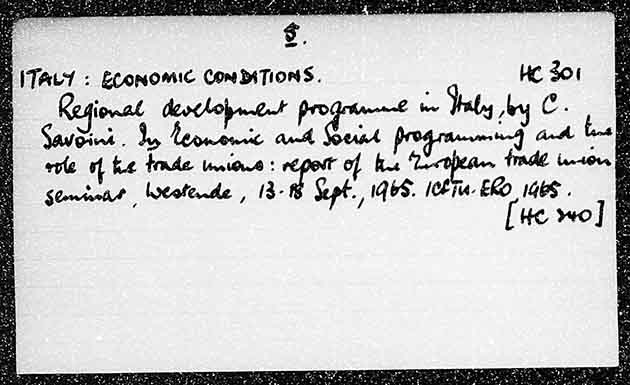 5.
ITALY : ECONOMIC CONDITIONS. HC 301
Regional development programme in Italy, by C.
Savoini. In Economic and Social programming and the
role of the trade unions : report of the European trade union
seminar, Westende, 13-18 Sept., 1965. ICFTU-ERO, 1965.
[HC 240]